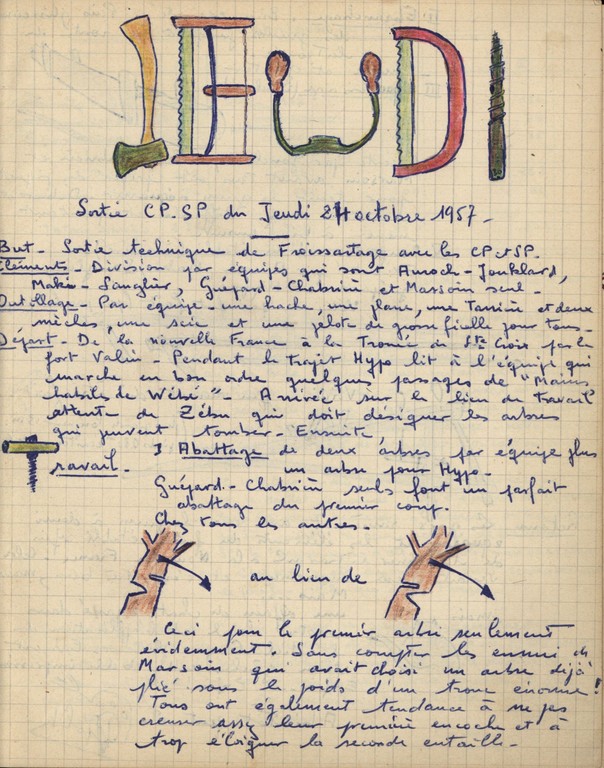 JEUDI
Sortie CP.SP du Jeudi 24 octobre 1957 -
But - Sortie technique de Froissartage avec les CP et SP.
Eléments - Division par équipes qui sont Auroch - Jonklard,
Maki - Sanglier, Guépard - Chabrière et Marsoin seul -
Outillage - Par équipe - une hache, une plane, une Tarière et deux
mèches, une scie et une pelote de grosse ficelle pour tous -
Départ - De la nouvelle France à la Tronée de Ste Croix par le
fort Valin - Pendant le trajet Hypo lit à l'équipe qui
marche en bon ordre quelques passages de "Mains
habiles de Wébé" - Arrivée sur le lieu de travail
attente de Zébu qui doit désigner les arbres
qui peuvent tomber - Ensuite
Travail - 1 Abattage de deux arbres par équipe plus
un arbre pour Hypo -
Guépard - Chabrière seuls font un parfait
abattage du premier coup.
Chez tous les autres -
au lieu de
Ceci pour le premier arbre seulement
évidemment. Sans compter les ennuis de
Marsoin qui avait choisi un arbre déjà
plié sous le poids d'un tronc énorme !
Tous ont également tendance à ne pas
creuser assez leur première encoche et à
trop éloigner la seconde entaille -